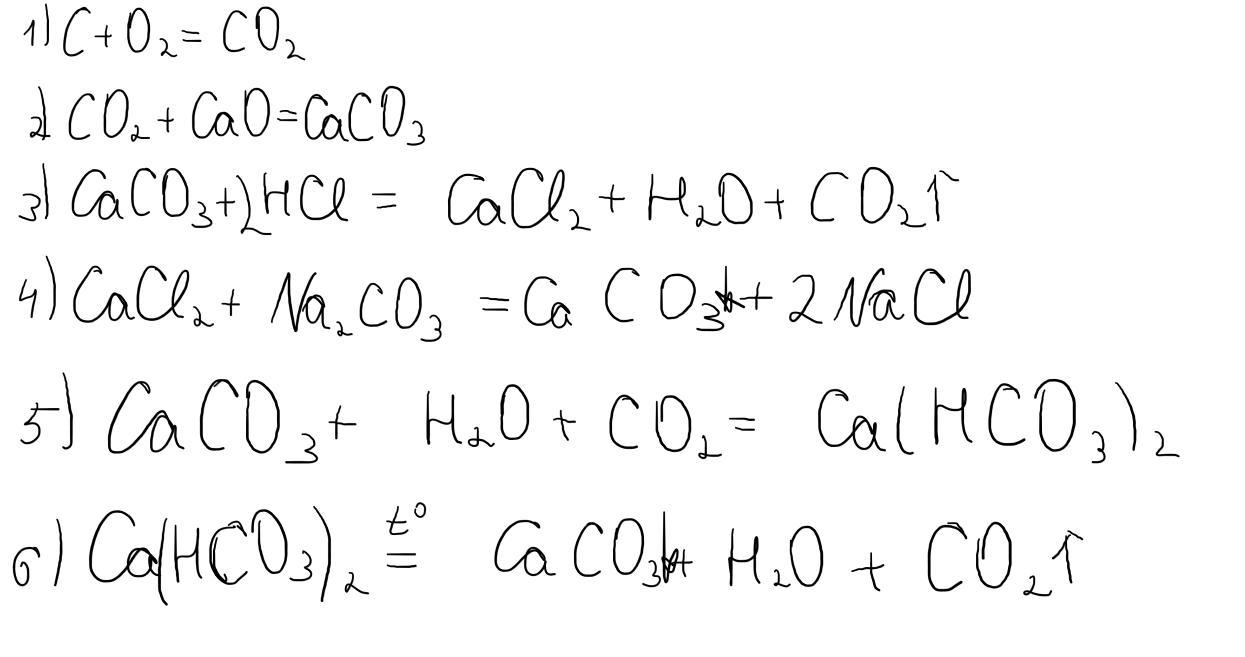 1) C + O₂ = CO₂
2) CO₂ + CaO = CaCO₃
3) CaCO₃ + 2HCl = CaCl₂ + H₂O + CO₂↑
4) CaCl₂ + Na₂CO₃ = CaCO₃↓ + 2NaCl
5) CaCO₃ + H₂O + CO₂ = Ca(HCO₃)₂
6) Ca(HCO₃)₂ =^{t°} CaCO₃↓ + H₂O + CO₂↑